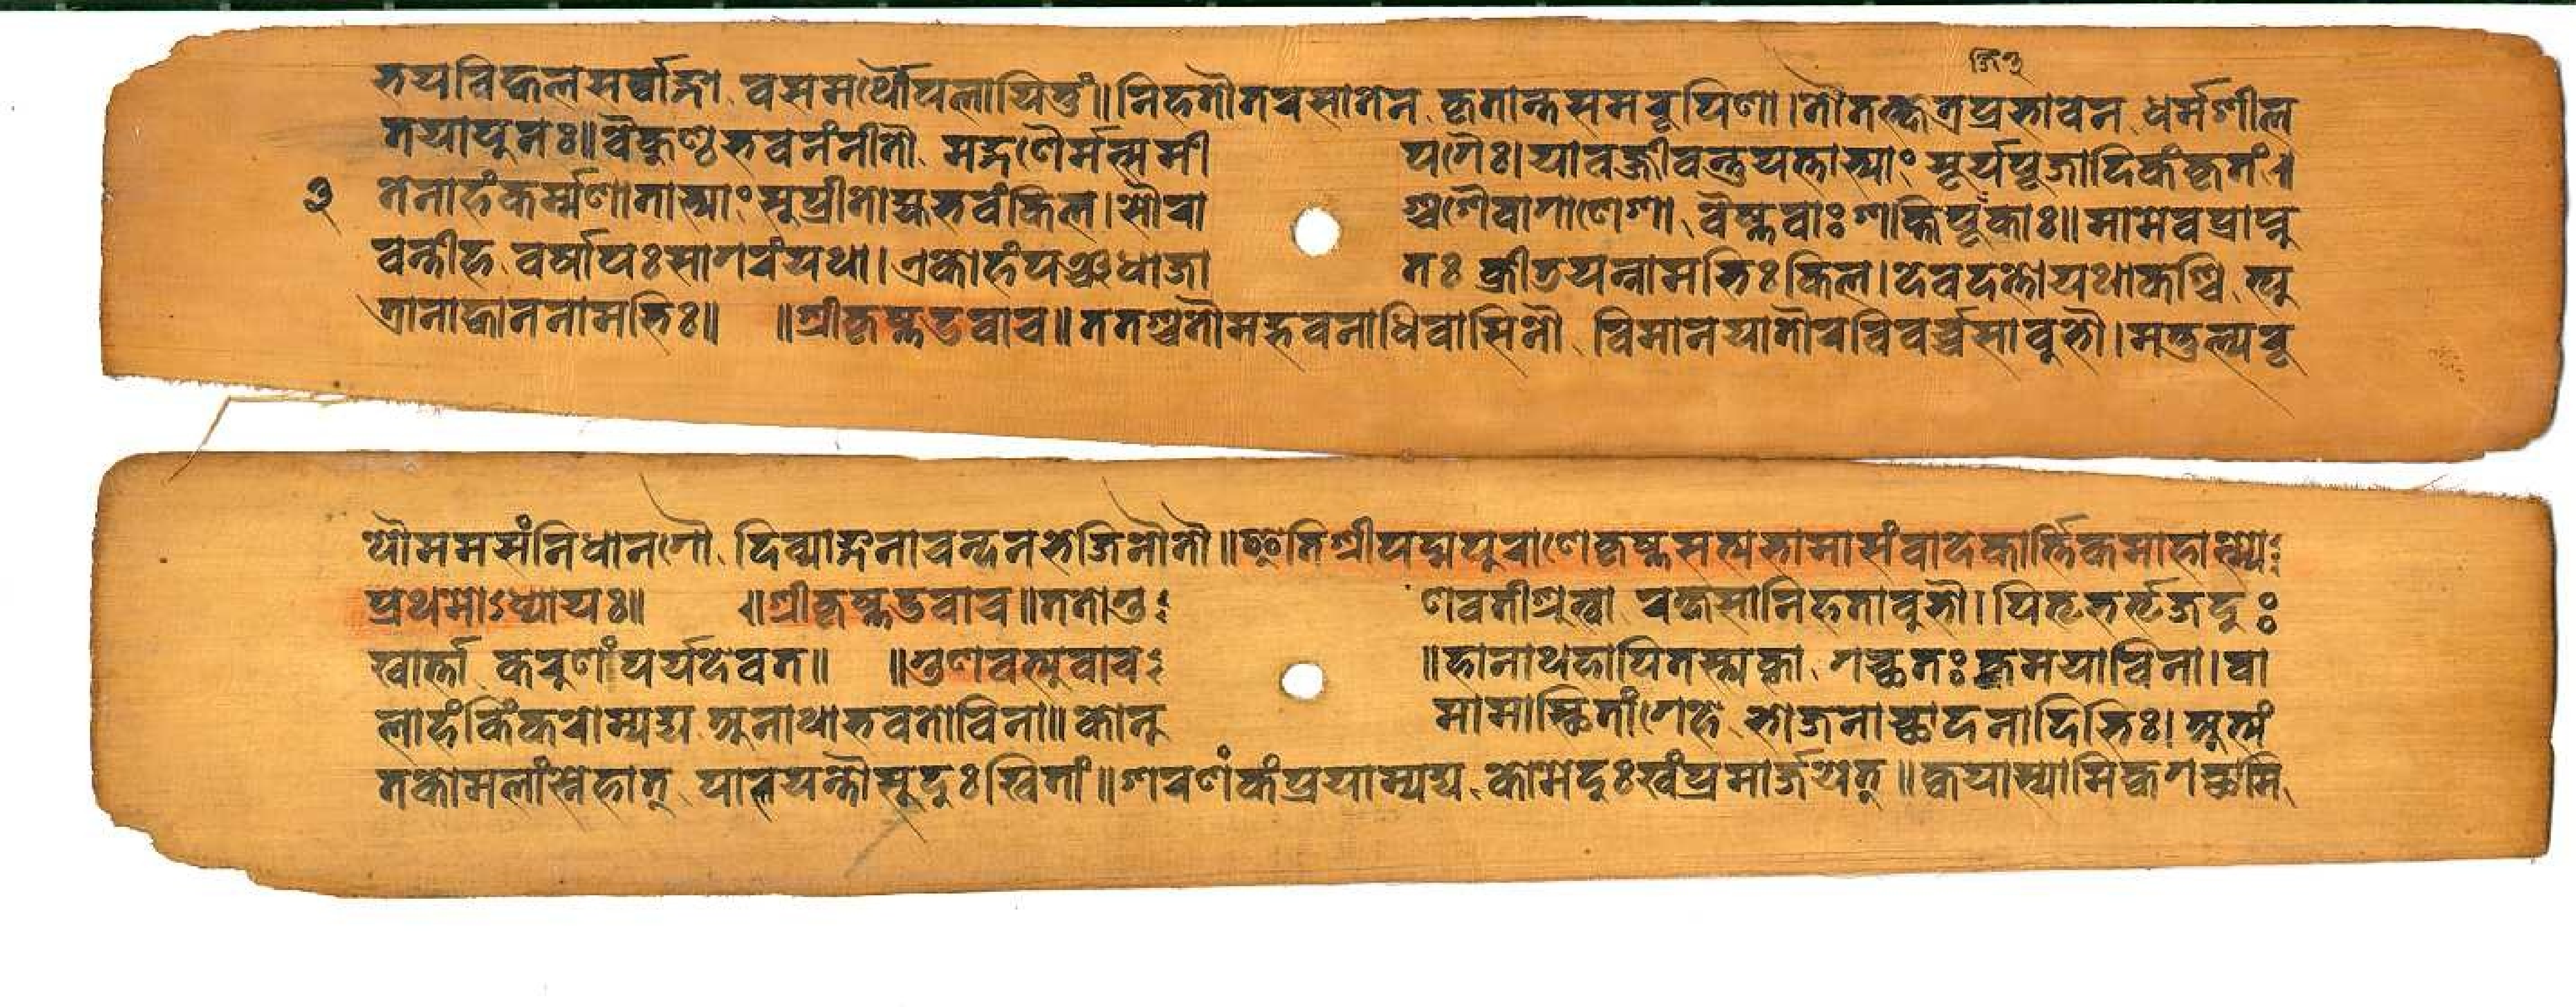 भयविह्वलसर्व्वाङ्गा वसमर्थौपलायितुं॥निहतौतरसातेन कृतान्तसमरूपिणा।तौतत्क्षेत्रप्रभावेन धर्मशील
तयापुनः॥वैकुण्ठभवनंनीतौ मद्गणैर्मत्समी पगैः।यावज्जीवन्तुयत्ताभ्यां सूर्यपूजादिकंकृतं॥
३ तेनाहंकर्म्मणाताभ्यां सुप्रीतोह्यभवंकिल।सौरा श्चशैवागाणेशा वैष्णवाःशक्तिपूकाः॥मामेवप्राप्नु
वन्तीह वर्षापःसागरंयथा।एकोहंपञ्चधाजा तः क्रीडयन्नामभिःकिल।देवदत्तोयथाकश्चि त्पु
त्रानाह्वाननामभिः॥ ॥श्रीकृष्णउवाच॥ततश्चतौमद्भवनाधिवासिनौ विमानयातौरविवर्च्चसावुभौ।मत्तुल्यरू
पौममसंनिधानगौ दिव्याङ्गनाचन्दनभोजिनौतौ॥इतिश्रीपद्मपुराणेकृष्णसत्यभामासंवादेकार्त्तिकमाहात्म्ये
प्रथमोऽध्यायः॥ ॥श्रीकृष्णउवाच॥ततोगु णवतीश्रुत्वा रक्षसानिहतावुभौ।पितृभर्तृजदुः
खार्त्ता करुणंपर्यदेवत॥ ॥गुणवत्युवाच ॥हानाथहापितस्त्यक्त्वा गच्छतःक्वमयाविना।बा
लाहंकिंकरोम्यद्य अनाथाभवतोविना॥कोनु मामास्थितांगेहे भोजनाच्छादनादिभिः।अत्यं
तकोमलांस्नेहात् पालयन्तौसुदुःखितां॥शरणंकंप्रयाम्यद्य कोमेदुःखंप्रमार्जयेत्॥क्वयास्यामिक्वगच्छामि